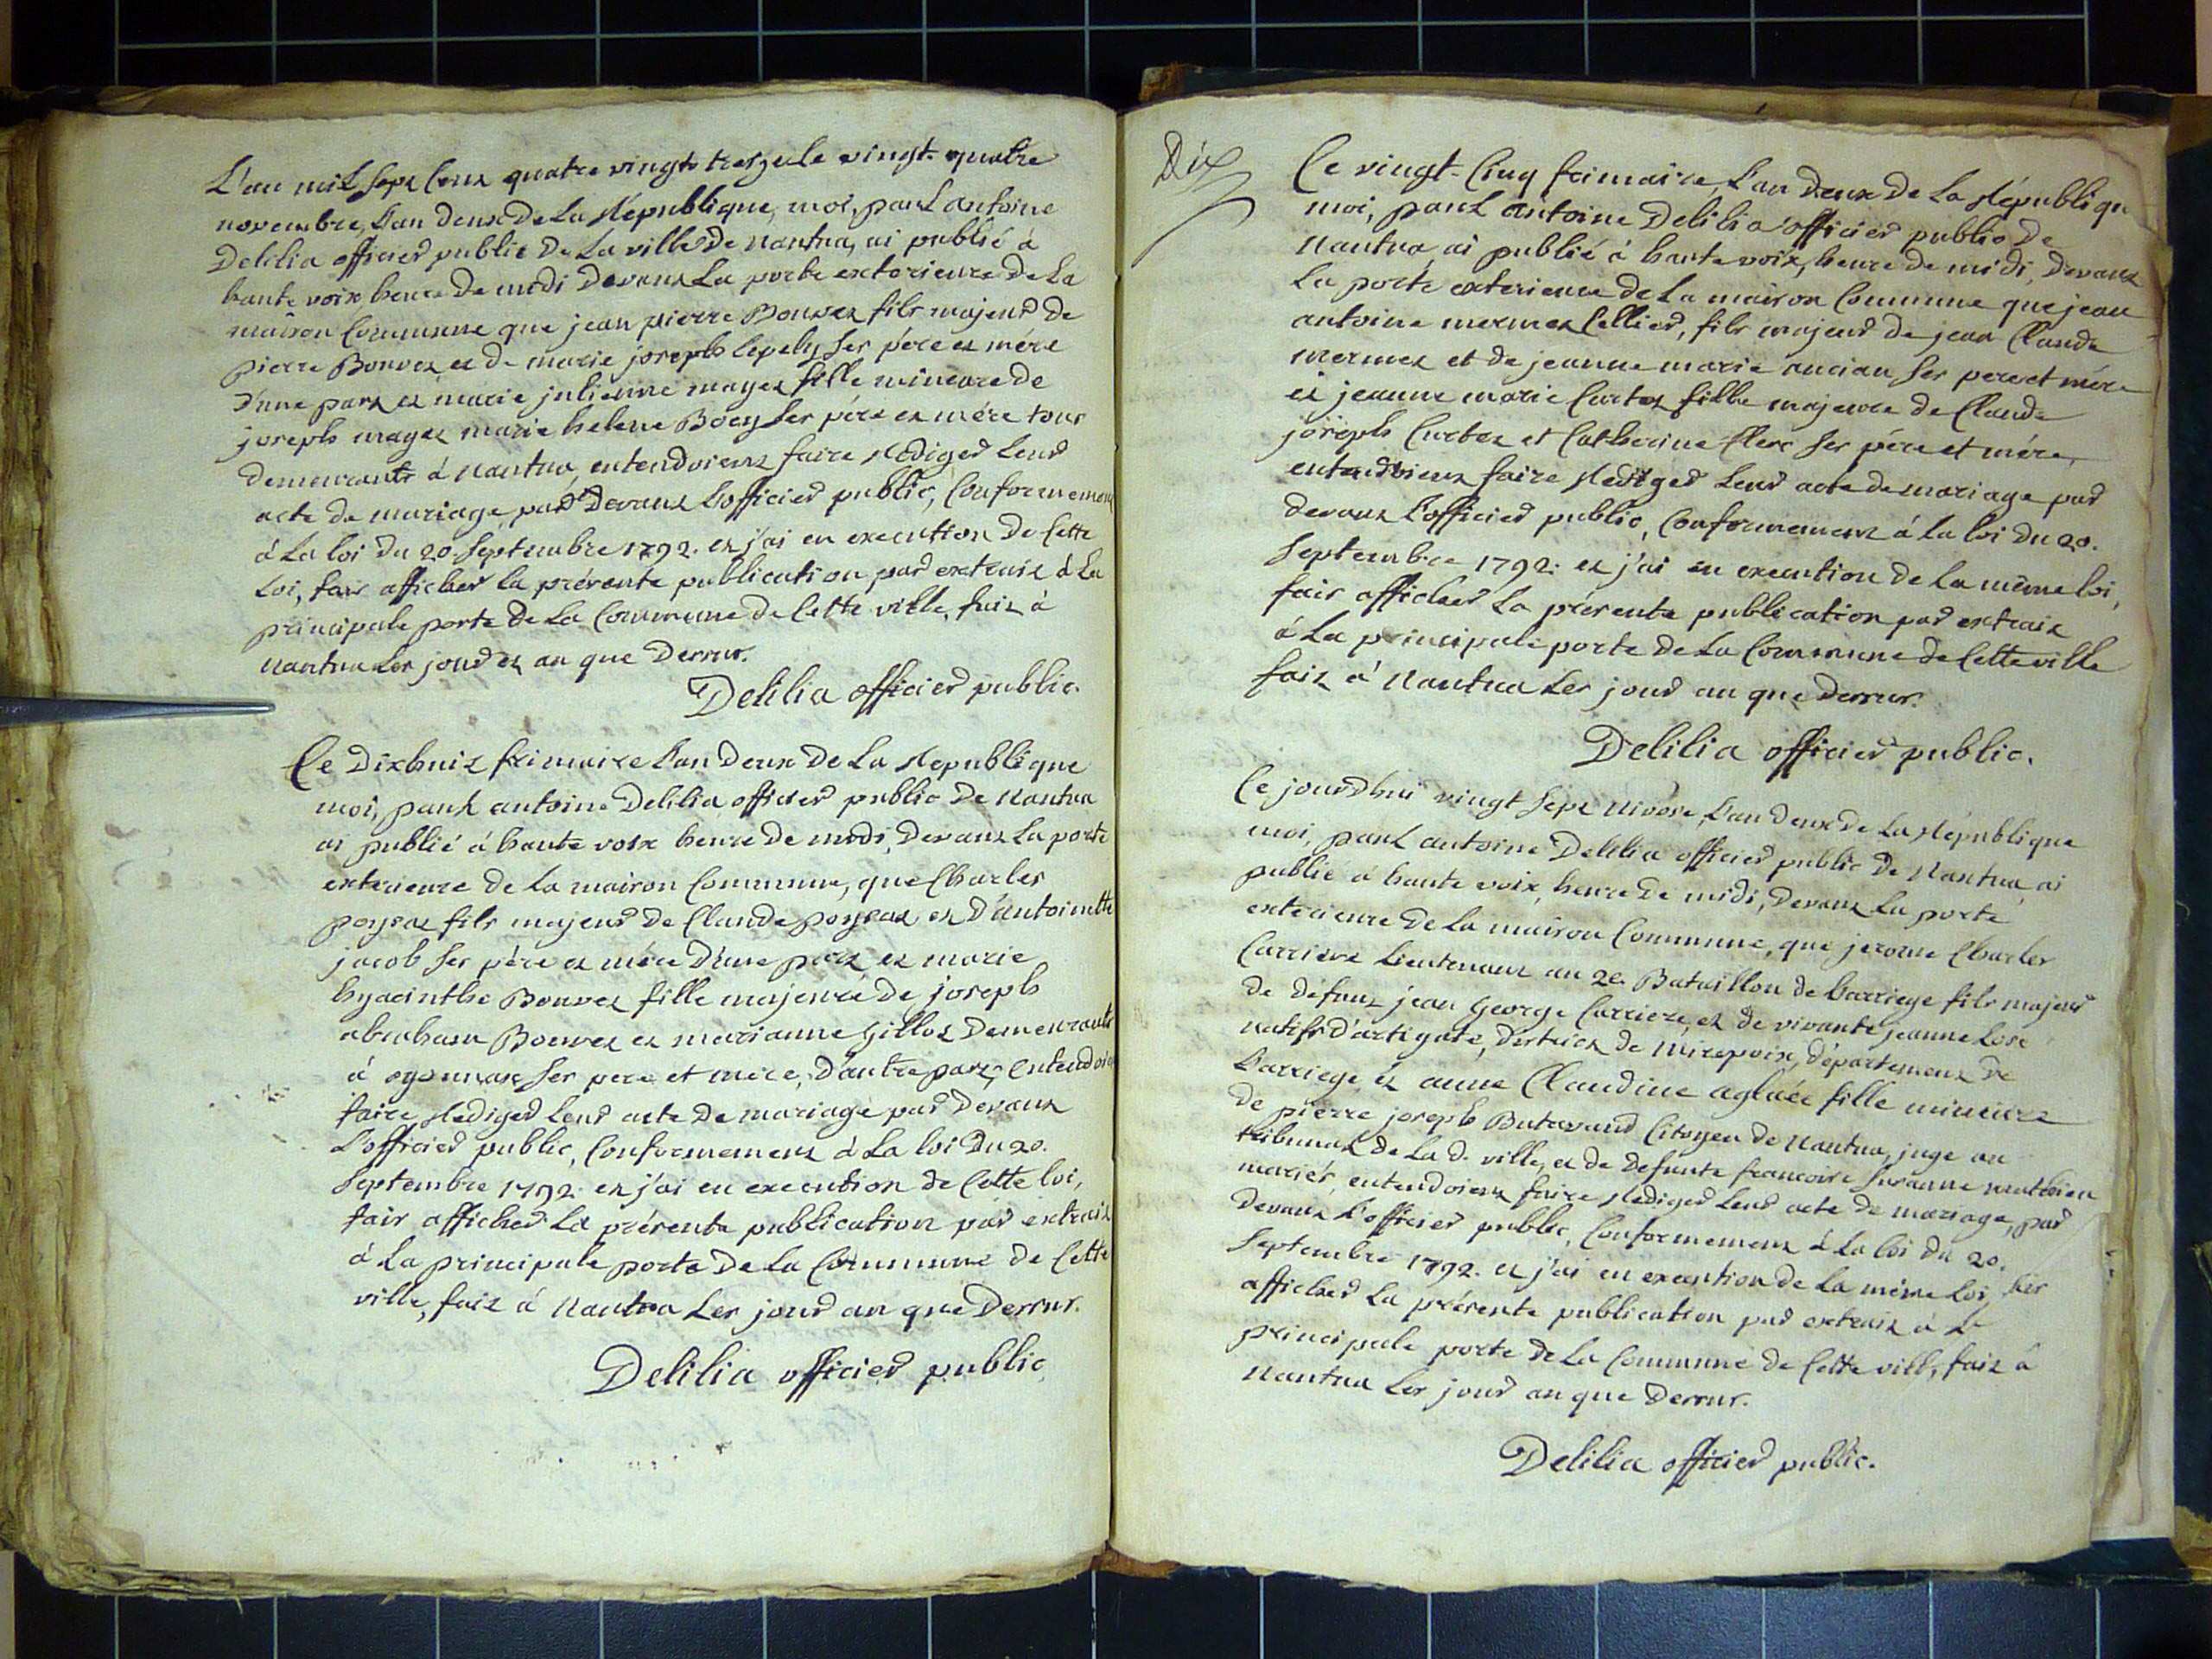 L'an mil sept cent quatre vingt treize le vingt-quatre
novembre, l'an deux de la République, moi, paul antoine
Delilia officier public de la ville de nantua, ai publié à
haute voix heure de midi devant la porte exterieure de la
maison commune que jean pierre Bouvet fils majeur de
pierre Bouvet et de marie joseph ses père et mère
d'une part et marie julienne mayet fille mineure de
joseph mayet marie helene Böey ses père et mère tous
demeurants à nantua, entendoient faire rediger leur
acte de mariage par devant l'officier public, conformement
à la loi du 20. septembre 1792. et j'ai en execution de cette
loi, fait afficher la présente publication par extrait à la
principale porte de la commune de cette ville, fait à
nantua les jour et an que dessus.
Delilia officier public.
Ce dixhuit frimaire l'an deux de la republique
moi, paul antoine Delilia officier public de nantua
ai publié à haute voix heure de midi, devant la porte
exterieure de la maison commune, que Charles
poysat fils majeur de Claude poysat et d'antoinette
jacob ses père et mère d'une part et marie
hyacinthe Bouvet fille majeure de joseph
abraham Bouvet et marianne Gillot demeurants
à oyonnax ses pere et mère, d'autre part, entendoient
faire rediger leur acte de mariage par devant
l'officier public, conformement à la loi du 20.
septembre 1792. et j'ai en execution de cette loi,
fait afficher la présente publication par extrait
à la principale porte de la commune de cette
ville, fait à nantua les jour an que dessus.
Delilia officier public
Dix
Ce vingt-cinq frimaire, l'an deux de la Républiqu
moi, paul antoine Delilia officier public de
nantua ai publié à haute voix, heure de midi, devant
la porte exterieure de la maison commune que jean
antoine mermet Cellier, fils majeur de jean Claude
mermet et de jeanne marie ancian ses pere et mère
et jeanne marie Curtet fille majeure de Claude
joseph Curtet et Catherine Clerc ses père et mère,
entendoient faire rediger leur acte de mariage par
devant l'officier public, conformement à la loi du 20.
septembre 1792. et j'ai en execution de la même loi,
fait afficher la présente publication par extrait
à la principale porte de la commune de cette ville
fait à nantua les jour an que dessus.
Delilia officier public.
Ce jourdhui vingt sept nivose, l'an deux de la République
moi, paul antoine Delilia officier public de Nantua, ai
publié à haute voix, heure de midi, devant la porte
exterieure de la maison commune, que jerome Charles
Carriere lieutenant au 2e. Bataillon de larriege fils majeur
de défunt jean George Carriere, et de vivante jeanne
natifs d'artigate, district de mirepoix, département de
Larriege, et anne Claudine aglaée fille mineure
de pierre joseph Butavand citoyen de nantua, juge au
tribunal de la d. ville, et de defunte francoise susanne
mariés, entendoient faire rediger leur acte de mariage, par
devant l'officier public, conformement à la loi du 20.
septembre 1792. et j'ai en execution de la même loi, fait
afficher la présente publication par extrait à la
principale porte de la commune de cette ville, fait à
nantua les jour an que dessus.
Delilia officier public.